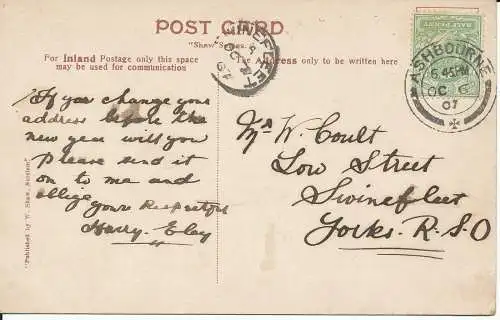 POST CARD
"Shaw" Series.
For Inland Postage only this space
may be used for communication
The Address only to be written here
SWINEFLEET
OC
07
HALFPENNY
ASHBOURNE
6 45 PM
OC 6
07
If you change your
address before the
new year will you
please send it
on to me and
oblige
yours Respectful
Harry. Eley
Mr W. Coult
Low Street
Swinefleet
Yorks. R.S.O
"Published by W. Shaw, Burslem"